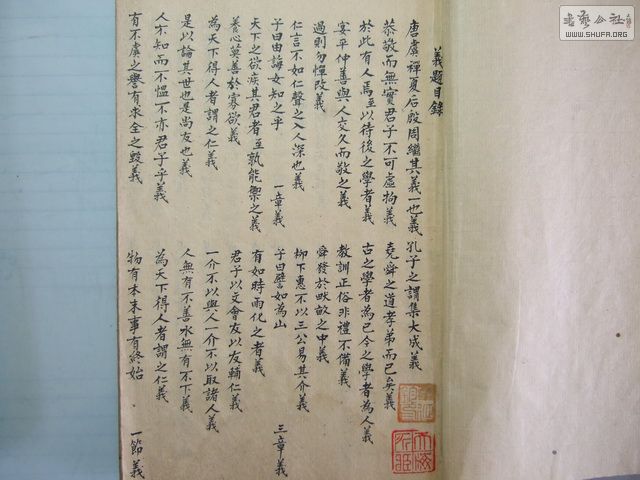 義題目錄
唐虞禪夏后殷周繼其義一也義 孔子之謂集大成義
恭敬而無實君子不可虛拘義 堯舜之道孝弟而已矣義
於此有人焉至以待後之學者義 古之學者為己今之學者為人義
晏平仲善與人交久而敬之義 教訓正俗非禮不備義
過則勿憚改義 舜發於畎畝之中義
仁言不如仁聲之入人深也義 柳下惠不以三公易其介義
子曰由誨女知之乎 一章義 子曰譬如為山 三章義
天下之欲疾其君者至孰能禦之義 有如時雨化之者義
養心莫善於寡欲義 君子以文會友以友輔仁義
為天下得人者謂之仁義 一介不以與人一介不以取諸人義
是以論其世也是尚友也義 人無有不善水無有不下義
人不知而不慍不亦君子乎義 為天下得人者謂之仁義
有不虞之譽有求全之毀義 物有本末事有終始 一節義
書藝公社
WWW.SHUFA.ORG